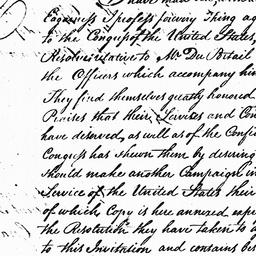 have made
Eagerness I profess joining Thing ag
to the Congress of the United States,
Resolves relative to Mr. Du Portail
the Officers which accompany him
They find themselves greatly honored
Praises that their Services and Con
have deserved, as well as of the Confi
Congress has shewn them by desiring
should make another Campaign in
Service of the United States their
of which Copy is here annexed exp
the Resolution they have taken to a
to this Invitation and contains bes